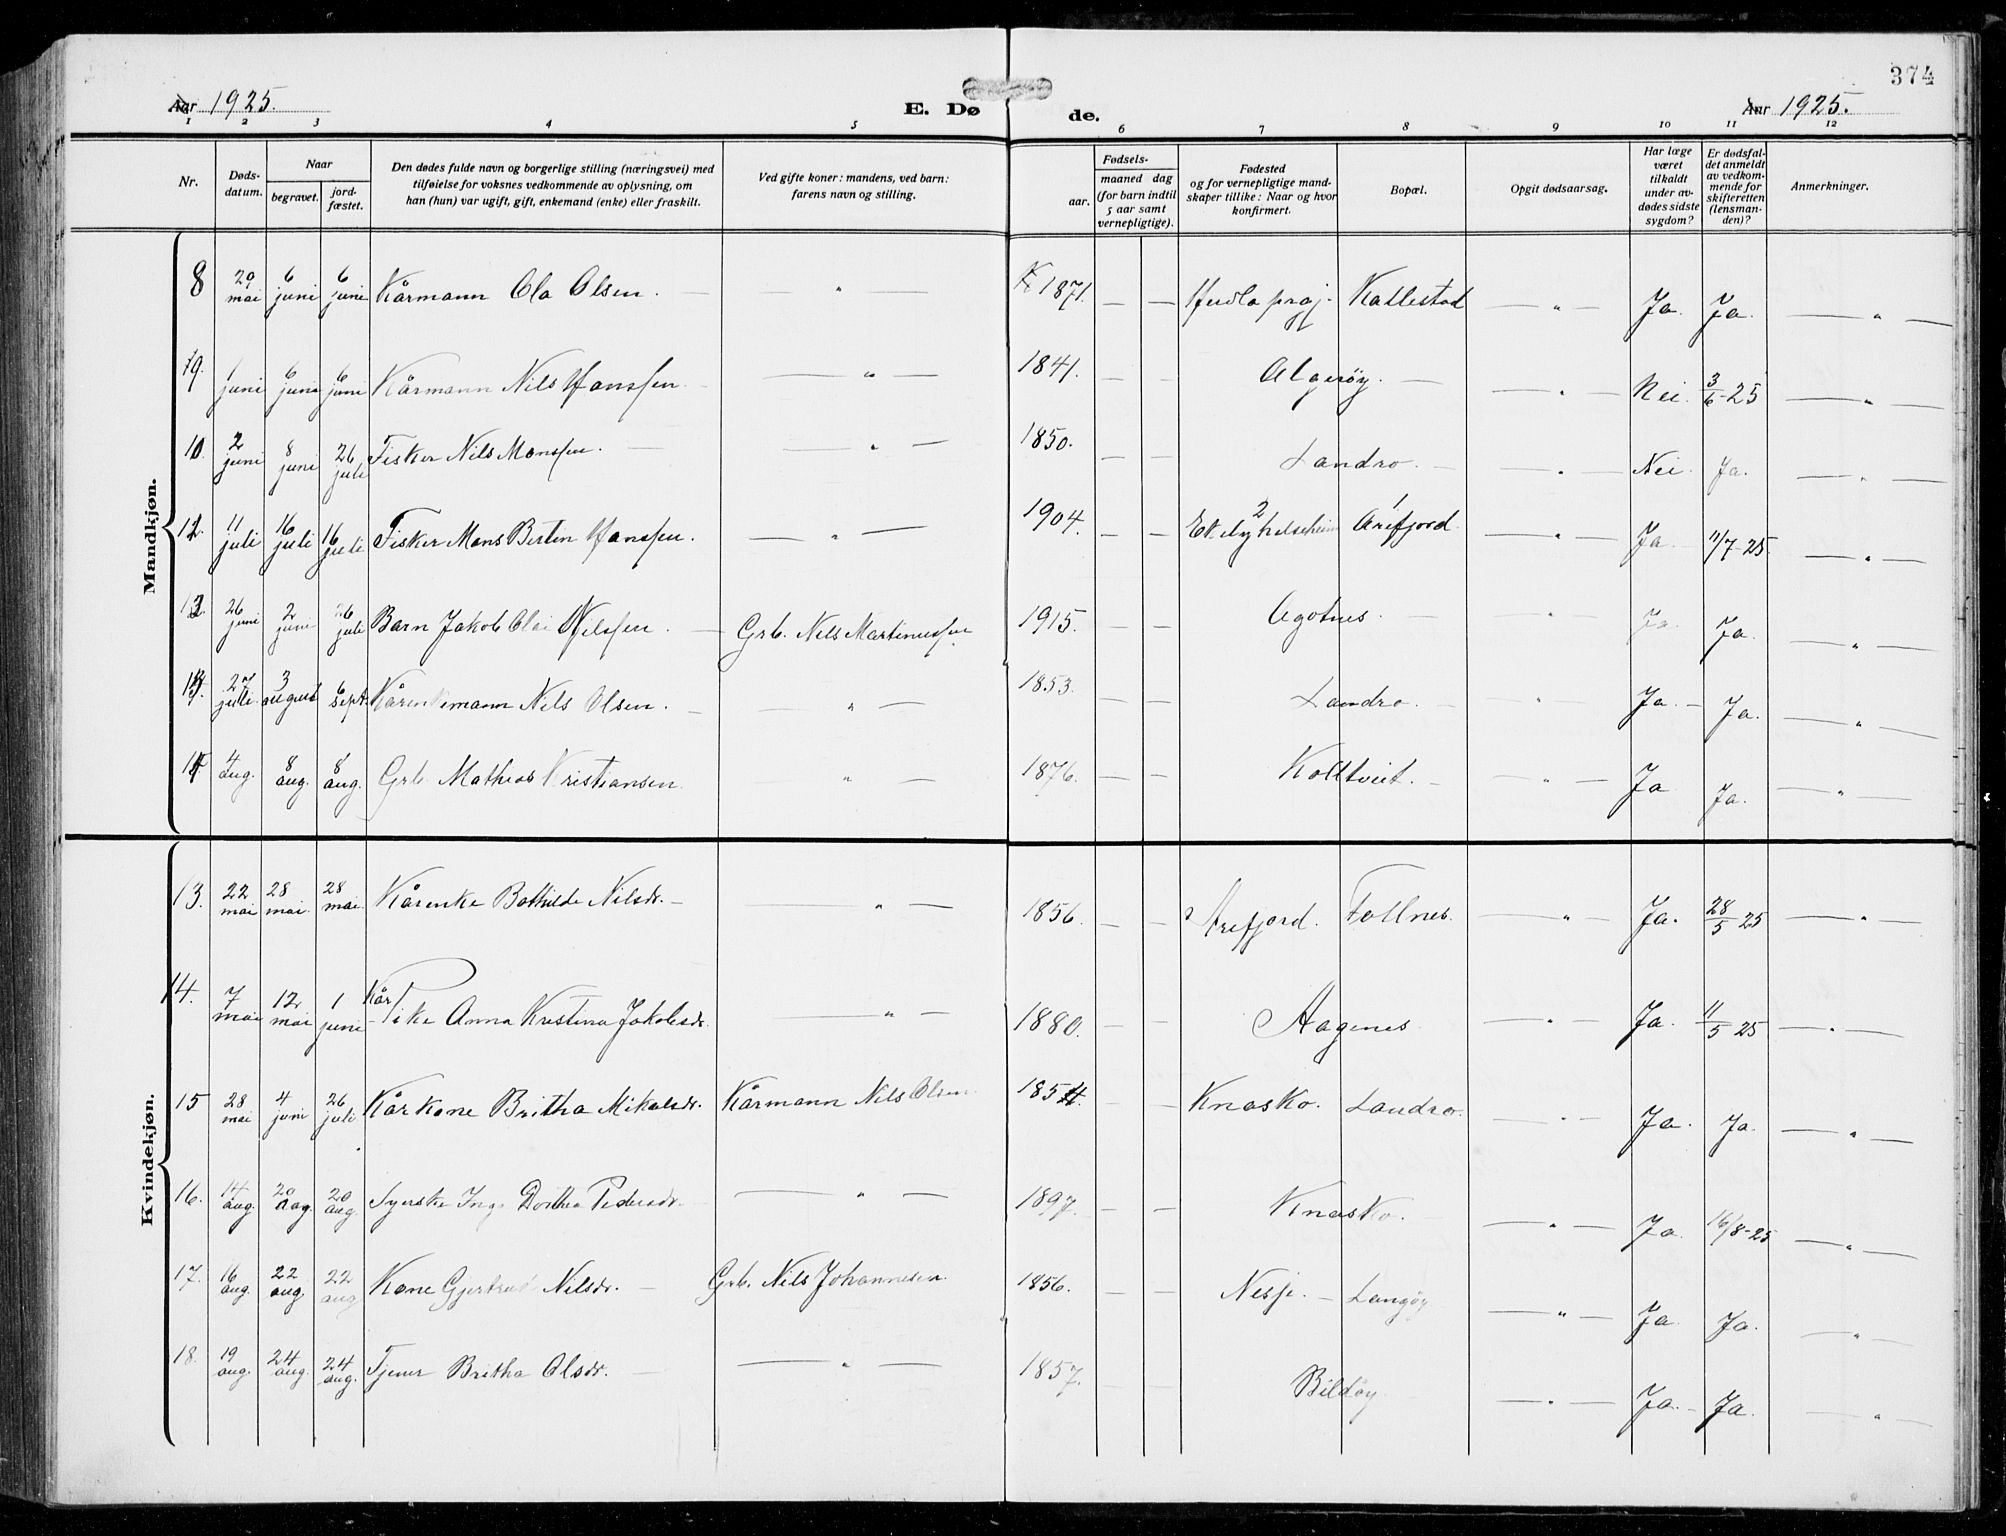 374
Aar 1925.
E. Dø
de.
Aar 1925.
1 2 3 4 5 6 7 8 9 10 11 12
Nr.
Døds-
datum.
Naar
begravet.
jord-
fæstet.
Den dødes fulde navn og borgerlige stilling (næringsvei) med
tilføielse for voksnes vedkommende av oplysning, om
han (hun) var ugift, gift, enkemand (enke) eller fraskilt.
Ved gifte koner: mandens, ved barn:
farens navn og stilling.
Fødsels-
aar.
maaned dag
(for barn indtil
5 aar samt
vernepligtige).
Fødested
og for vernepligtige mand-
skaper tillike: Naar og hvor
konfirmert.
Bopæl.
Opgit dødsaarsag.
Har læge
været
tilkaldt
under av-
dødes sidste
sygdom?
Er dødsfal-
det anmeldt
av vedkom-
mende for
skifteretten
(lensman-
den)?
Anmerkninger.
Mandkjøn.
8 29 mai 6 juni 6 juni Kårmann Ola Olsen. — " — 1871. — — Herdla prgj. Kallestad — " — Ja. Ja. — " —
9. 1 juni 6 juni 6 juni Kårmann Nils Hanssen. — " — 1841. — — Algerøy. — — " — Nei. 3/6-25 — " —
10. 2 juni 8 juni 26 juli Fisker Nils Monssen. — " — 1850. — — Landro. — — " — Nei. Ja. — " —
11 juli 16 juli 16 juli Fisker Mons Bertin Hanssen. — " — 1904. — — 2 1 Arefjord. — " — Ja. 11/7-25. — " —
26 juni 2 juni 26 juli Barn Jakob Olai Nilssen. — Grb. Nils Martinussen. 1915. — — Agotnes. — " — Ja. Ja. — " —
27 juli. 3 august 6 sept. Kårenkemann Nils Olsen. — " — 1853. — — Landro. — " — Ja. — Ja. — " —
4 aug. 8 aug. 8 aug. Grb. Mathias Kristiansen. " — 1876. — — Kolltveit. — " — Ja Ja. — " —
Kvindekjøn.
13. 22 mai 28 mai. 28 mai. Kårenke Bothilde Nilsdr. — — " — 1856. — — Arefjord. Follnes. — " — Ja. 28/5 25 — " —
14. 7 mai 12 mai 1 juni Kår Pike Anna Kristina Jakobsdr. — " — 1880. — — Aagenes — " — Ja. 11/5 25 — " —
15 28 mai 4 juni 26 juli Kårkone Britha Mikalsdr. Kårmann Nils Olsen. 1854. — — Knasko. Landro. — " — Ja. Ja. — " —
16. 14 aug. 20 aug. 20 aug. Syerske Inga Dorthea Pedersdr. — " — 1897. — — Knasko. — " — Ja. 16/8-25 — " —
17. 16 aug. 22 aug. 22 aug Kone Gjertrud Nilsdr. — Grb. Nils Johannesen. 1856. — — Nesje. — Langøy — " — Ja. Ja. — " —
18. 19 aug. 24 aug. 24 aug. Tjener Britha Olsdr. — — " — 1857. — — Bildøy — " — Ja. — Ja. — " —